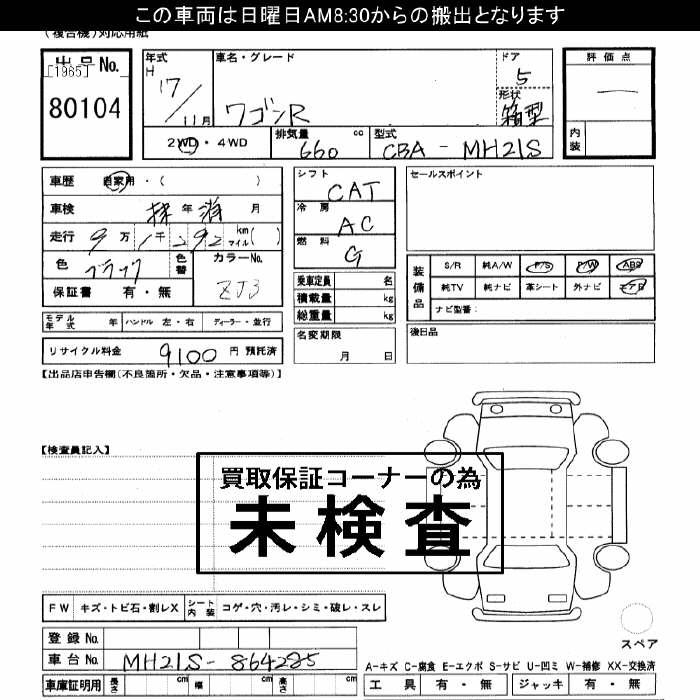 この車両は日曜日AM8:30からの搬出となります
(複合機)対応用紙
出品No.
[1965]
80104
年式 H 17/11月
車名・グレード ワゴンR
ドア 5
形状 箱型
2WD・4WD
排気量 660 cc
型式 CBA - MH21S
評価点 —
内装
車歴 自家用・( )
車検 抹 年 消 月
走行 9万1千292 km マイル( )
色 ブラック 色替
カラーNo. ZJ3
保証書 有・無
モデル年式 年 ハンドル 左・右 ディーラー・並行
リサイクル料金 9100 円 預託済
シフト CAT
冷房 AC
燃料 G
乗車定員 名
積載量 kg
総重量 kg
名変期限 月 日
セールスポイント
装備品 S/R 純A/W P/S P/W ABS
純TV 純ナビ 革シート 外ナビ エアB
ナビ型番:
後日品
【出品店申告欄(不良箇所・欠品・注意事項等)】
【検査員記入】
買取保証コーナーの為
未検査
FW キズ・トビ石・割レX シート内装 コゲ・穴・汚レ・シミ・破レ・スレ
登録No.
車台No. MH21S-864285
車庫証明用 長さ cm 幅 cm 高さ cm
スペア
A-キズ C-腐食 E-エクボ S-サビ U-凹ミ W-補修 XX-交換済
工具 有・無 ジャッキ 有・無